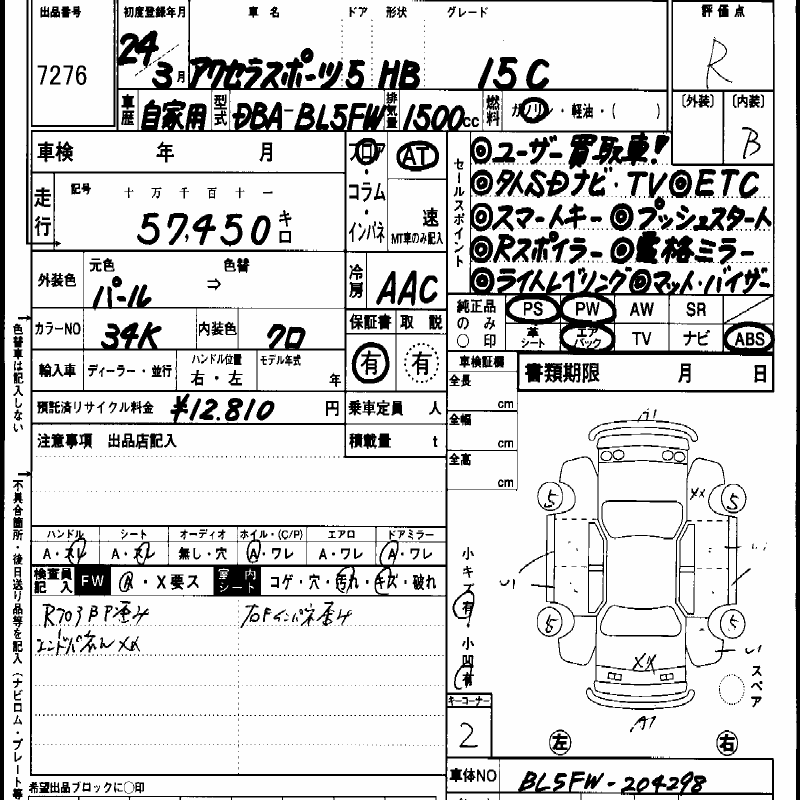 出品番号
7276
初度登録年月
24
3月
車名
アクセラスポーツ
ドア 形状
5 HB
グレード
15C
評価点
R
車歴 自家用
型式 DBA-BL5FW
排気量 1500cc
燃料 ガソリン・軽油・( )
〔外装〕 〔内装〕
B
車検 年 月
フロア・コラム・インパネ
AT
速
MT車のみ記入
セールスポイント
◎ユーザー買取車!!
◎外SDナビ・TV◎ETC
◎スマートキー◎プッシュスタート
◎Rスポイラー◎電格ミラー
◎ライトレベリング◎マット・バイザー
走行
記号 十万千百十一
57,450キロ
外装色 元色 パール ⇒ 色替
冷房 AAC
カラーNO 34K 内装色 クロ
保証書 取説
有 有
純正品のみ〇印
PS PW AW SR
革シート エアバック TV ナビ ABS
輸入車 ディーラー・並行
ハンドル位置 右・左
モデル年式 年
車検証欄
全長 cm
全幅 cm
全高 cm
書類期限 月 日
預託済リサイクル料金 ¥12.810円
乗車定員 人
積載量 t
注意事項 出品店記入
色替車は記入しない
不具合箇所・後日送り品等を記入(ナビロム・プレート等
ハンドル シート オーディオ ホイル・(C/P) エアロ ドアミラー
A・スレ A・スレ 無し・穴 A・ワレ A・ワレ A・ワレ
検査員記入 FW A・X要ス
室内シート コゲ・穴・汚れ・キズ・破れ
R703BP歪み
右Fインパネ歪み
エンドパネルXX
小キズ 有・小凹 有
キーコーナー
2
U1
XX
5 5
U1
5 5
U1
XX
A1
スペア
左 右
車体NO BL5FW-204298
希望出品ブロックに〇印